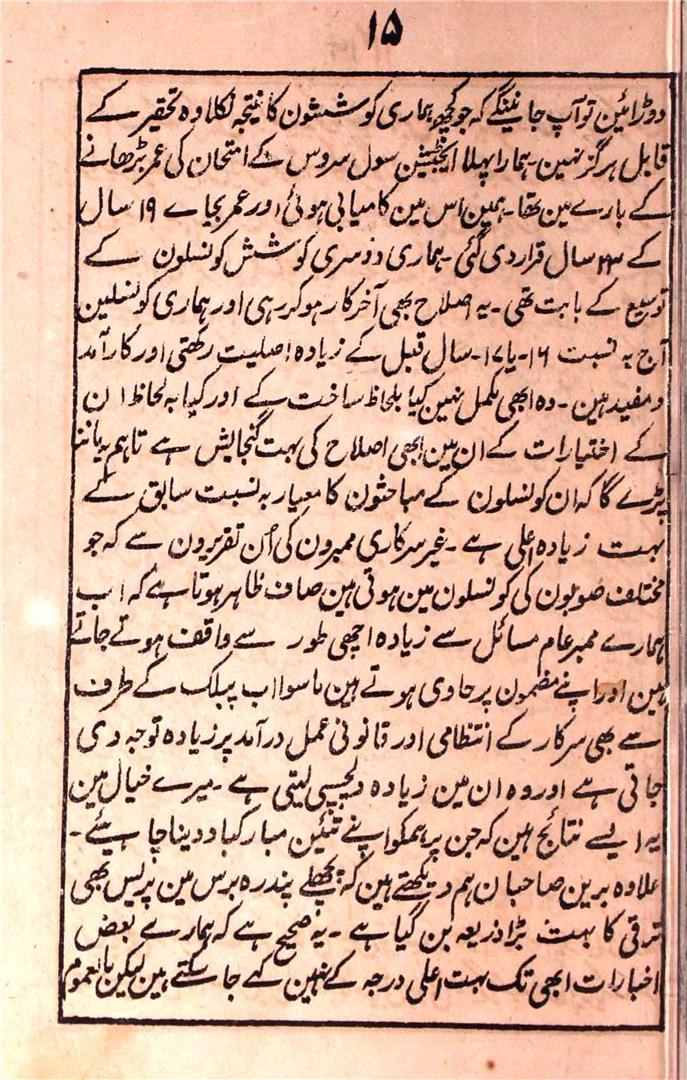 ۱۵
دوڑائین تو آپ جانینگے کہ جو کچھ ہماری کوششون کا نتیجہ نکلا وہ تحقیر کے
قابل ہر گز نہین۔ ہمارا پہلا ایجیٹیشن سول سروس کے امتحان کی عمر بڑھانے
کے بارے مین تھا۔ ہمین اس مین کامیابی ہوئی اور عمر بجاے ۱۹ سال
کے ۲۳ سال قرار دی گئی۔ ہماری دوسری کوشش کونسلون کے
توسیع کے بابت تھی۔ یہ اصلاح بھی آخر کار ہو کر رہی اور ہماری کونسلین
آج بہ نسبت ۱۶۔ یا ۱۷۔ سال قبل کے زیادہ اصلیت رکھتی اور کارآمد
و مفید ہین۔ وہ ابھی مکمل نہین کیا بلحاظ ساخت کے اور کیا بہ لحاظ ان
کے اختیارات کے ان مین ابھی اصلاح کی بہت گنجایش ہے تاہم یہ ماننا
پڑے گا کہ ان کونسلون کے مباحثون کا معیار بہ نسبت سابق کے
بہت زیادہ اعلی ہے۔ غیر سرکاری ممبرون کی اُن تقریرون سے کہ جو
مختلف صوبون کی کونسلون مین ہوتی ہین صاف ظاہر ہوتا ہے کہ اب
ہمارے ممبر عام مسائل سے زیادہ اچھی طور سے واقف ہوتے جاتے
ہین اور اپنے مضمون پر حاوی ہوتے ہین ماسوا اب پبلک کے طرف
سے بھی سرکار کے انتظامی اور قانونی عمل درآمد پر زیادہ توجہ دی
جاتی ہے اور وہ ان مین زیادہ دلچسپی لیتی ہے۔ میرے خیال مین
یہ ایسے نتائج ہین کہ جن پر ہمکو اپنے تئین مبارکباد دینا چاہیئے۔
علاوہ برین صاحبان ہم دیکھتے ہین کہ پچھلے پندرہ برس مین پریس بھی
ترقی کا بہت بڑا ذریعہ بن گیا ہے۔ یہ صحیح ہے کہ ہمارے بعض
اخبارات ابھی تک بہت اعلی درجہ کے نہین کہے جا سکتے ہین لیکن بالعموم